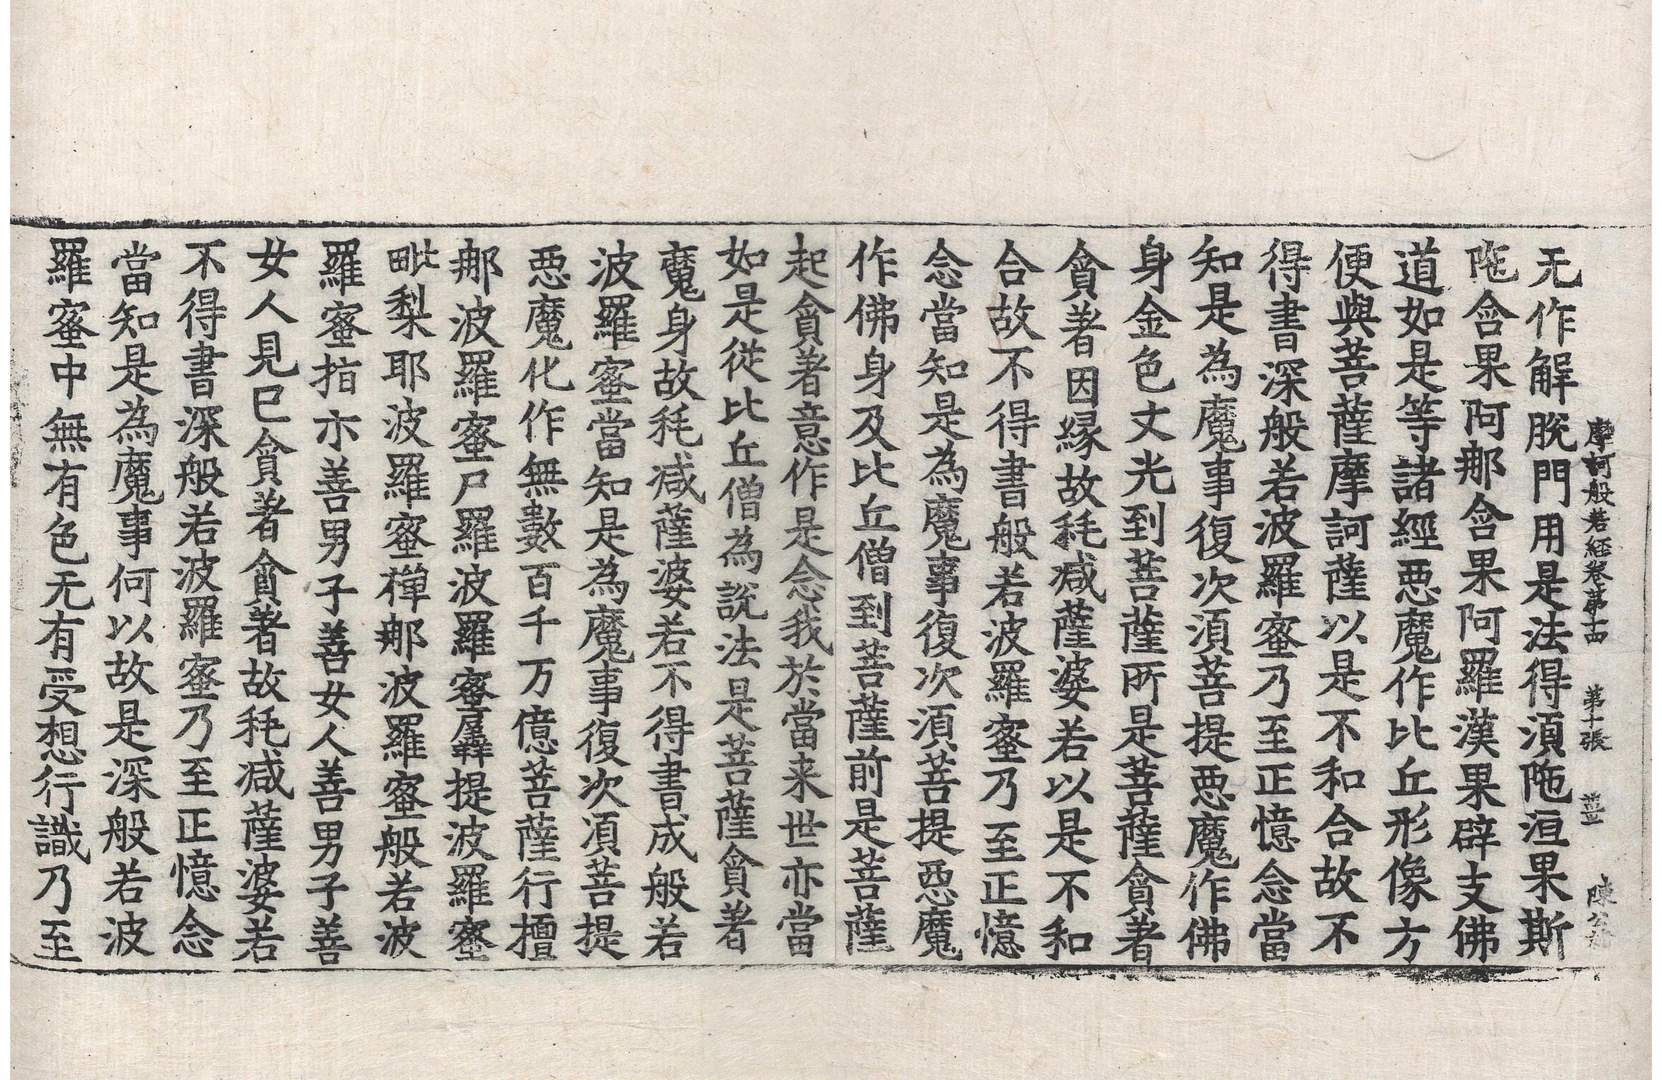 摩訶般若經卷第十四　第十張　薑　陳公
无作解脫門用是法得湏陁洹果斯
陁含果阿那含果阿羅漢果辟支佛
道如是等諸經惡魔作比丘形像方
便與菩薩摩訶薩以是不和合故不
得書深般若波羅蜜乃至正憶念當
知是為魔事復次湏菩提惡魔作佛
身金色丈光到菩薩所是菩薩貪著
貪著因緣故秏减薩婆若以是不和
合故不得書般若波羅蜜乃至正憶
念當知是為魔事復次湏菩提惡魔
作佛身及比丘僧到菩薩前是菩薩
起貪著意作是念我於當来世亦當
如是從比丘僧為說法是菩薩貪著
魔身故秏减薩婆若不得書成般若
波羅蜜當知是為魔事復次湏菩提
惡魔化作無數百千万億菩薩行檀
那波羅蜜尸羅波羅蜜羼提波羅蜜
毗梨耶波羅蜜禪那波羅蜜般若波
羅蜜指示善男子善女人善男子善
女人見已貪著貪著故秏减薩婆若
不得書深般若波羅蜜乃至正憶念
當知是為魔事何以故是深般若波
羅蜜中無有色无有受想行識乃至